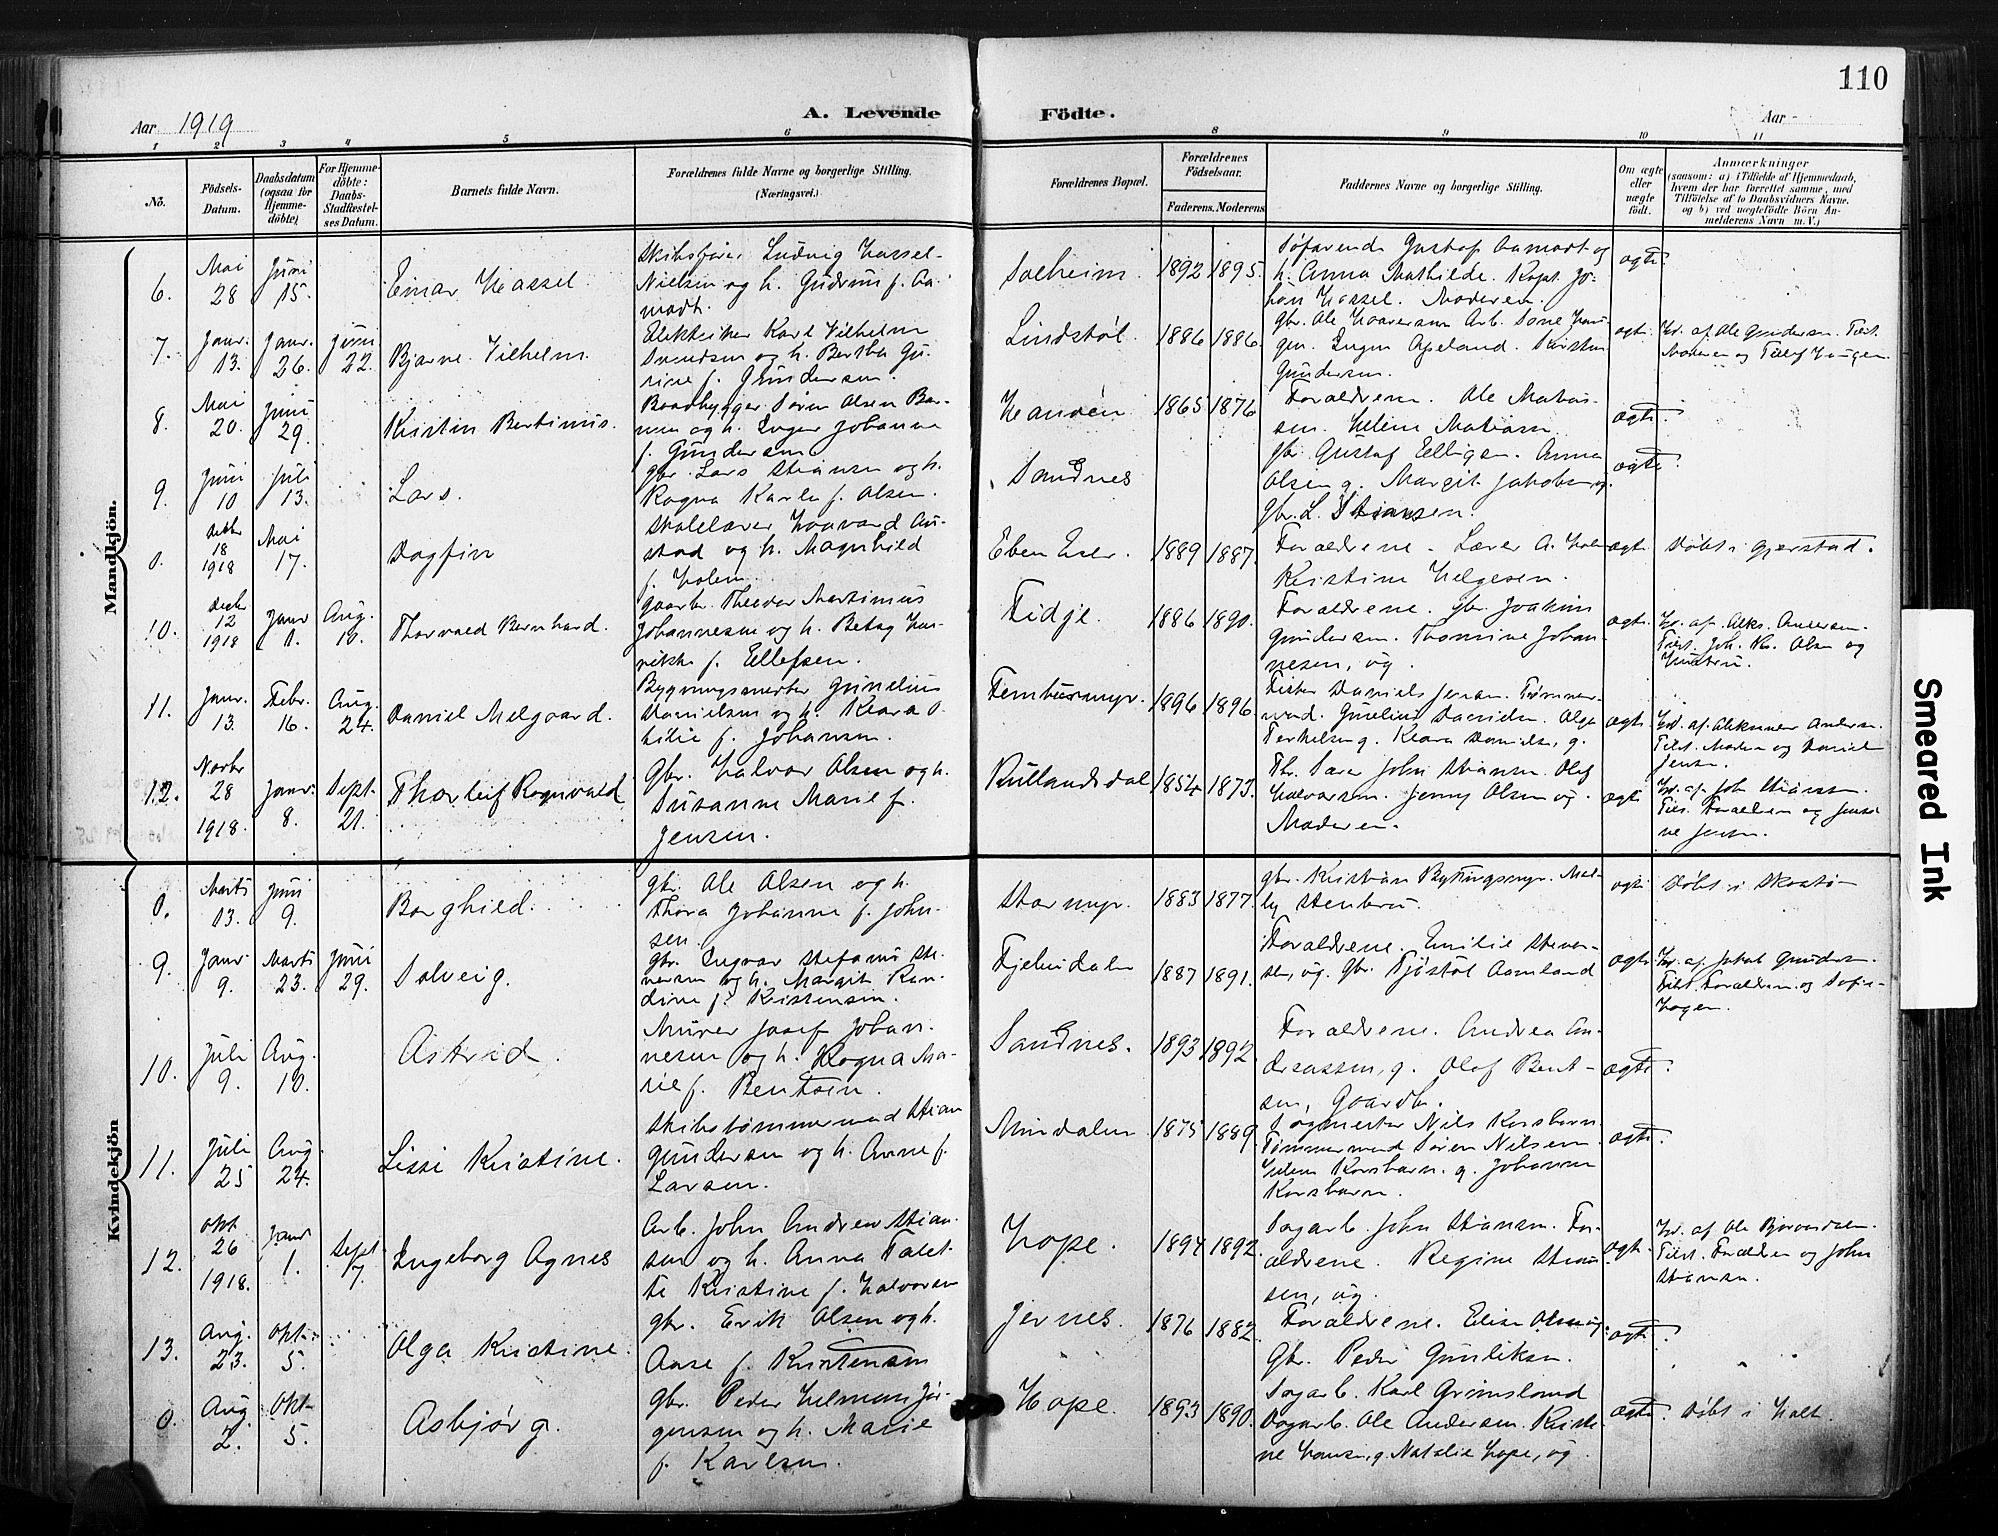 110
Aar 1919
A. Levende
Födte.
Aar
1 2 3 4 5 6 8 9 10 11
No.
Födsels-
Datum.
Daabsdatum
(ogsaa for
Hjemme-
döbte)
For Hjemme-
döbte:
Daabs-
Stadfæstel-
ses Datum.
Barnets fulde Navn.
Forældrenes fulde Navne og borgerlige Stilling.
(Næringsvei.)
Forældrenes Bopæl.
Forældrenes
Födselsaar.
Faderens. Moderens
Faddernes Navne og borgerlige Stilling.
Om ægte
eller
uægte
født.
Anmærkninger
(saasom: a) i Tilfælde af Hjemmedaab,
hvem der har forrettet samme, med
Tilföielse af to Daabsvidners Navne.
og b) ved uægtefödte Börn An-
melderens Navn m. V.)
Mandkjön.
6.
Mai
28
Juni
15.
Einar Hassel.
Skibsfører Ludvig Hassel-
Nielsen og h. Gudrun f. Aa-
modt.
Solheim.
1892
1895.
Søfarende Gustaf Aamodt og
h. Anna Mathilde. Kapt. Jo-
han Hassel. Moderen.
ægte.
7.
Janr.
13.
Janr.
26.
Juni
22.
Bjarne Vilhelm
Elektriker Karl Vilhelm
Svendsen og h. Bertha Gu-
rine f. Gundersen.
Lindstøl.
1886
1886.
gbr. Ole Haaversen Arb. Tone Hau-
gen. Inger Apeland. Kristen
Gundersen.
ægte.
Hd. af Ole Gundersen. Tilst.
Moderen og Tellef Haugen.
8.
Mai
20.
Juni
29.
Kristen Bertinius.
Baadbygger Søren Olsen Ban-
nen og h. Inger Johanne
f. Gundersen
Sandøen
1865
1876
Forældrene. Ole Mathias-
sen. Helene Mathiasen.
ægte.
9.
Juni
10
Juli
13.
Lars.
gbr. Lars Stiansen og h.
Ragna Karle f. Olsen.
Sandnes
gbr. Gustaf Ellingsen. Anna
Olsen g. Margit Jakobsen, ug.
gbr. L. Stiansen.
ægte.
0.
Decbr
18
1918
Mai
17.
Dagfin
Skolelærer Haavard Au-
stad og h. Magnhild
f. Holen.
Eben Ezer.
1889
1887.
Forældrene. Lærer A. Holen
Kristine Helgesen.
ægte
Døbt i Gjerstad.
10.
Decbr
12
1918
Janr
1.
Aug.
10.
Thorvald Bernhard.
Gaardbr. Theodor Martinius
Johannesen og h. Betsy Hen-
rikke f. Ellefsen.
Fidje.
1886
1890.
Forældrene. gbr. Joakim
Gundersen. Thomine Johan-
nesen, ug.
ægte
Hd. af. Aleks. Andersen.
Tilst. Joh. Kr. Olsen og
Hustru.
11.
Janr.
13.
Febr.
16.
Aug.
24.
Daniel Melgaard.
Bygningsmester Gunelius
Danielsen og h. Klara O-
tilie f. Johansen.
1896
1896
ægte
Hd. af. Aleksander Andersen.
Tilst. Moderen og Daniel
Jensen.
12.
Novbr
28
1918.
Janr.
8.
Sept.
21.
Thorleif Ragnvald
Gbr. Halvor Olsen og h.
Susanne Marie f.
Jensen.
Rullandsdal
1854
1873.
John Stiansen. Olaf
Halvorsen. Jenny Olsen ug.
Moderen.
ægte
Hd. af Joh Stiansen.
Tilst. Forældrene og Jensi-
ne Jensen.
Kvindekjön
0.
Marts
13.
Juni
9.
Borghild.
gbr. Ole Olsen og h.
Thora Johanne f. John-
sen.
Stormyr.
1883
1877.
gbr. Kristian Bytingsmyr. Mal-
ly Stenbru.
ægte
Døbt i Skaatø
9.
Janr.
9.
Marts
23.
Juni
29.
Solveig.
gbr. Ingvar Stefanus Ste-
nersen og h. Margit Kan-
dine f. Kristensen.
Fjeluidalen
1887
1891.
Forældrene. Emilie Stener-
sen, ug. Gbr. Tjøstøl Aamland
ægte
Hd. af Jakob Gundersen.
Tilst. Forældrene og Sofie
Hagen.
10.
Juli
9.
Aug.
10.
Astrid.
Murer Josef Johan-
nesen og h. Ragna Ma-
rie f. Bentsen.
Sandnes.
1893
1892.
Forældrene. Andrea An-
dreassen, g. Olaf Bent-
sen, Gaardbr.
ægte.
11.
Juli
25
Aug.
24.
Lissi Kristine.
Skibstømmermand Stian
Gundersen og h. Anne f.
Larsen.
Mindalen
1875
1889.
Sagmester Nils Korsbarn.
Tømmermand Søren Nilsen.
Helene Korsbarn. g. Johanna
Korsbarn.
ægte.
12.
Okt
26
1918.
Janr
1.
Sept
7.
Ingeborg Agnes
Arb. John Andreas Stian-
sen og h. Anna Talet-
te Kristine f. Halvorsen
Hope.
1894
1892.
Sagarb. John Stiansen. For-
ældrene. Regine Stian-
sen, ug.
ægte.
Hd. af Ole Bjorvandalen.
Tilst. Forældrene og John
Stiansen.
13.
Aug.
23.
Okt.
5.
Olga Kristine.
gbr. Erik Olsen og h.
Aase f. Kristensen
Jernes.
1876
1882.
Forældrene. Elise Olsen ug.
Gbr. Peder Gunliksen.
ægte.
0.
Aug.
2.
Okt
5.
Asbjørg.
gbr. Peder Helman Jør-
gensen og h. Marie
f. Karlsen.
Hope.
1893
1890.
Sagarb. Karl Grimsland
Sagarb. Ole Andersen. Kristi-
ne Hansen, g. Natalie Hope, ug.
ægte.
Døbt i Holt.
Smeared Ink